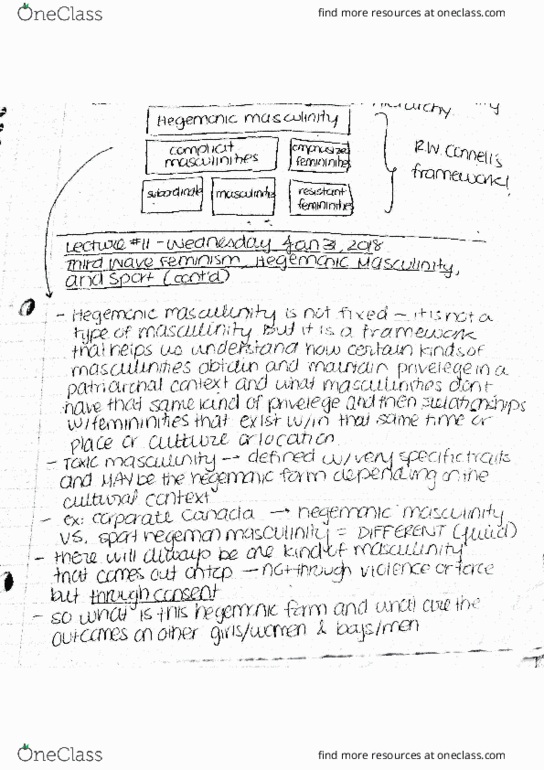 OneClass
find more resources at oneclass.com
hierarchy.
Hegemonic masculinity
complicit masculinities
emphasized femininities
R.W. Connell's framework!
subordinate
masculinities
resistant femininities
Lecture #11 - Wednesday Jan 31, 2018
Third Wave Feminism, Hegemonic Masculinity,
and Sport (cont'd)
- Hegemonic masculinity is not fixed - it is not a
type of masculinity but it is a framework
that helps us understand how certain kinds of
masculinities obtain and maintain privelege in a
patriarchal context and what masculinities don't
have that same kind of privelege and then relationships
w/ femininities that exist w/in that same time or
place or culture or location
- Toxic masculinity → defined w/ very specific traits
and MAY be the hegemonic form depending on the
cultural context
- ex: corporate Canada → hegemonic masculinity
VS. sport hegemon masculinity = DIFFERENT (fluid)
- there will always be one kind of masculinity
that comes out on top → not through violence or force
but through consent
- so what is this hegemonic form and what are the
outcomes on other girls/women & boys/men
OneClass
find more resources at oneclass.com